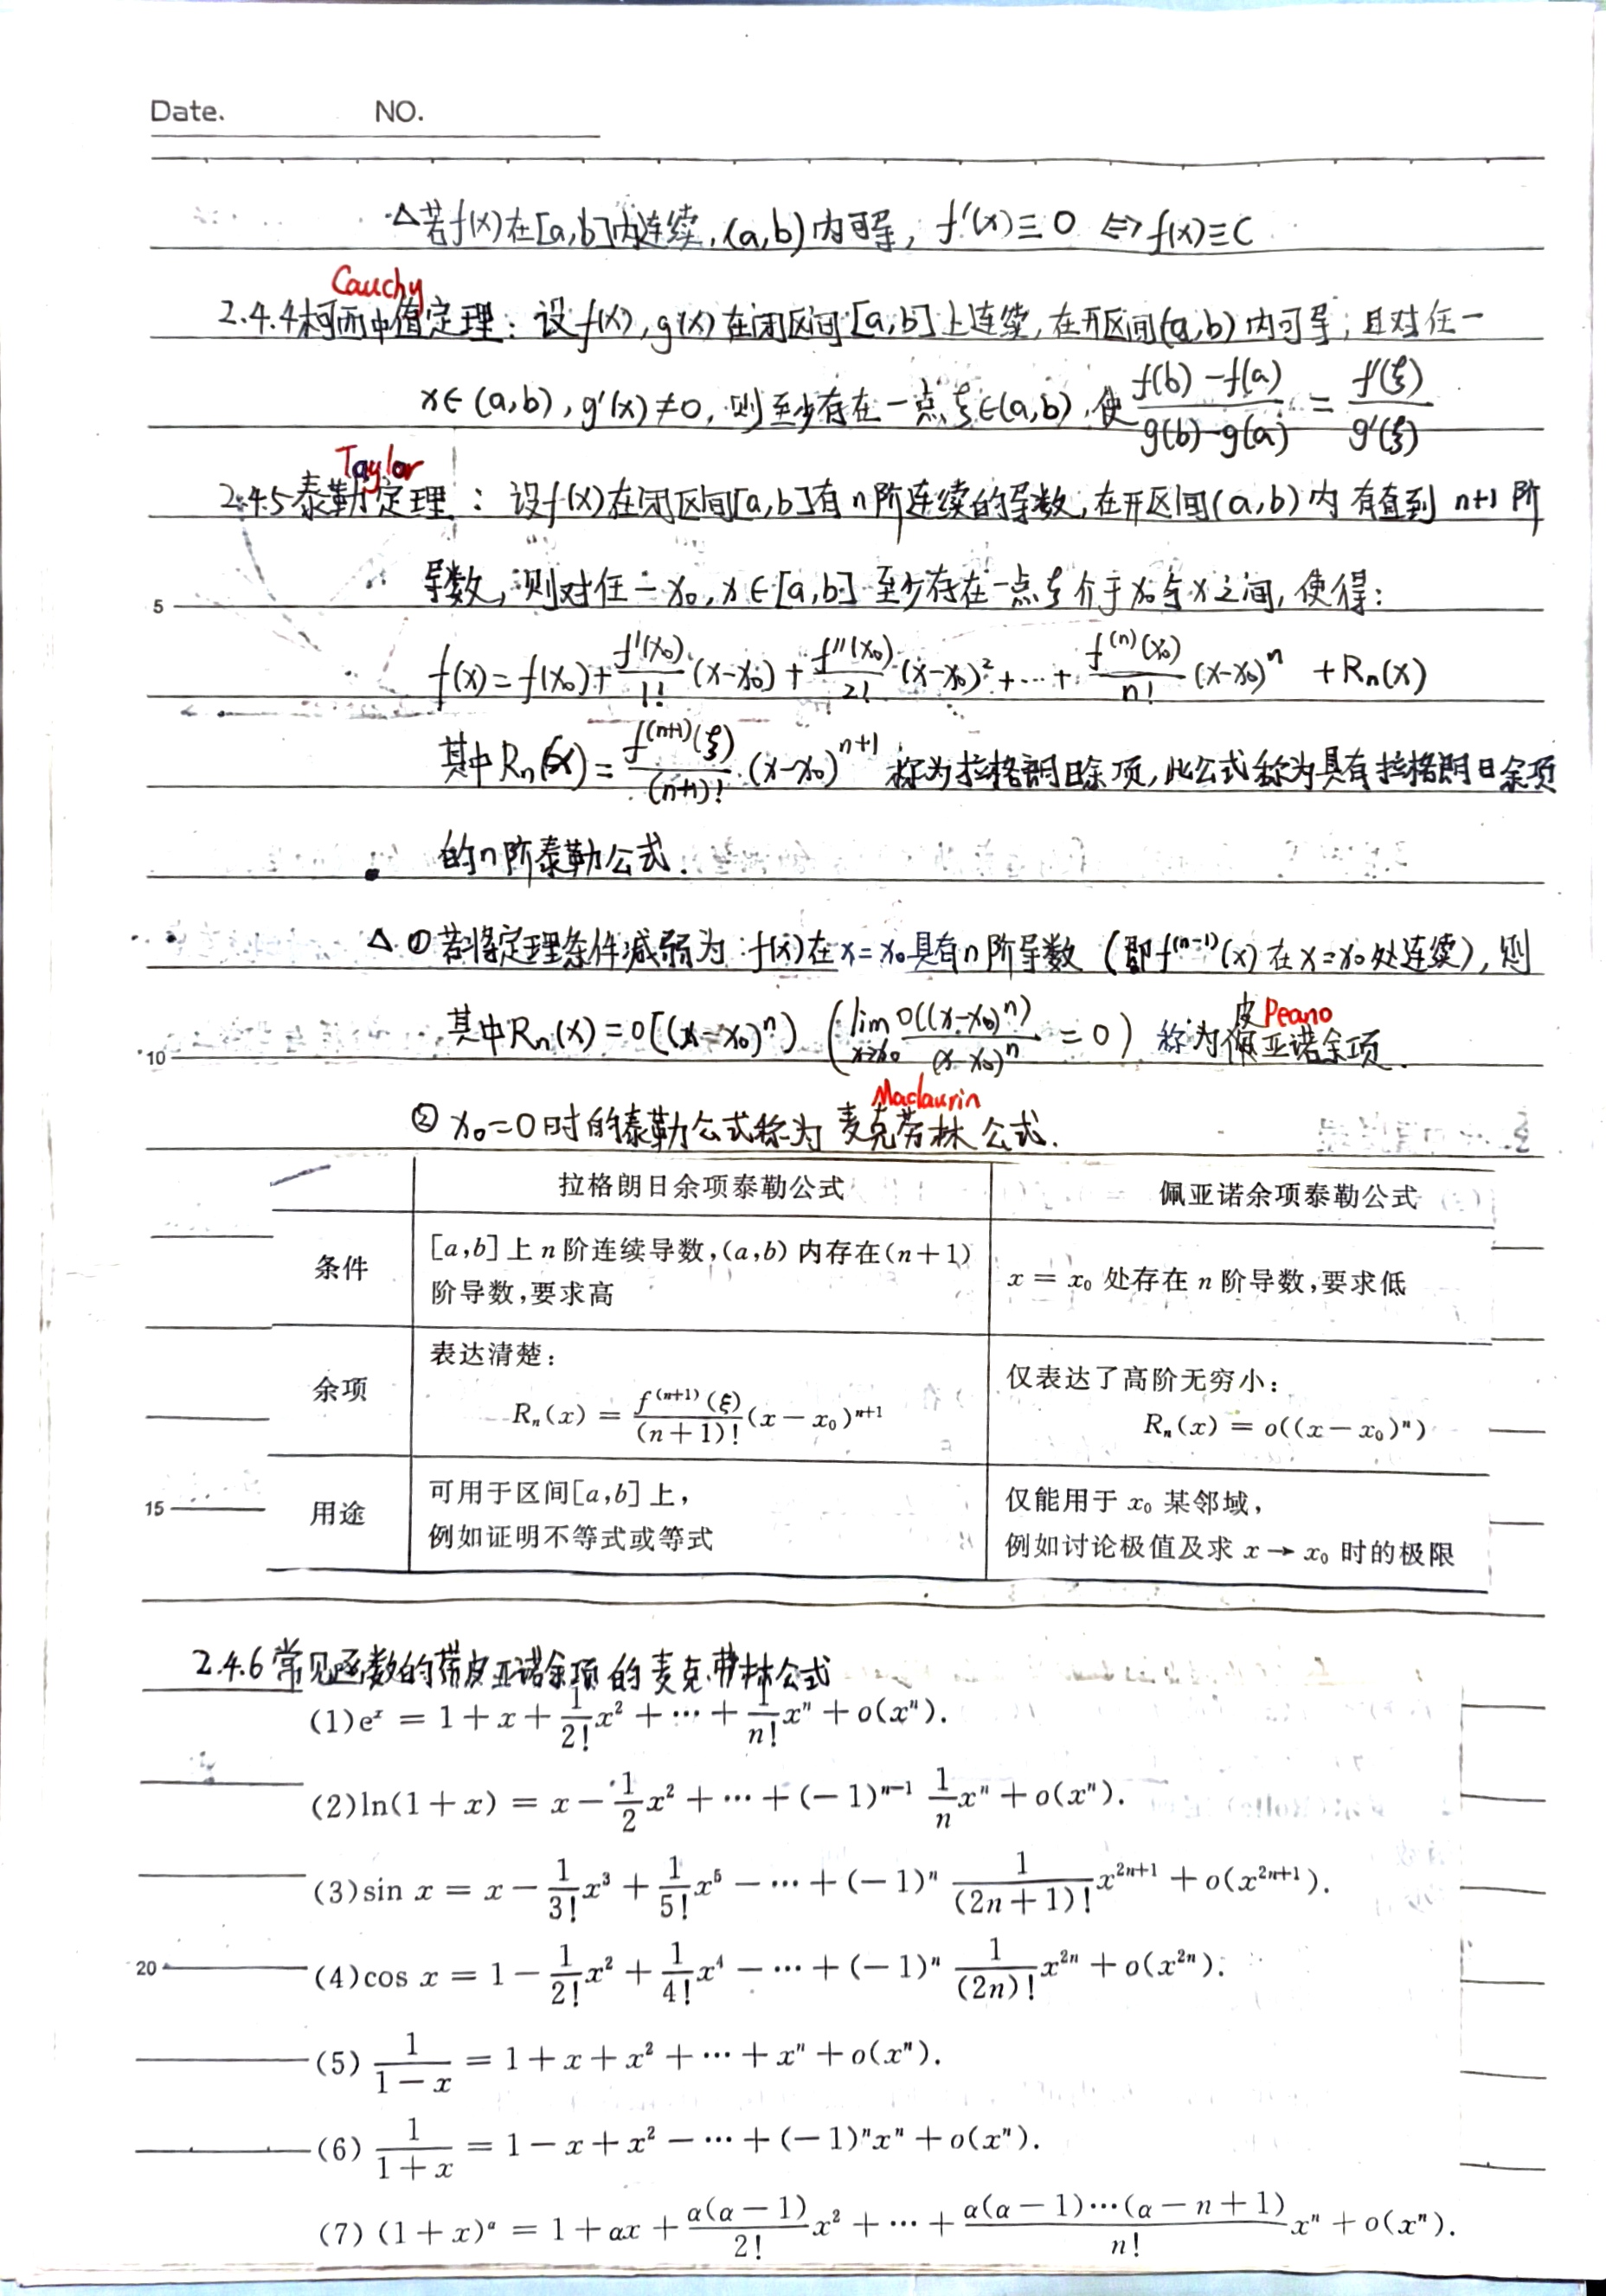 Date. NO.
△若f(x)在[a,b]内连续,(a,b)内可导, f'(x)≡0 ⇔ f(x)≡C
Cauchy
2.4.4柯西中值定理: 设f(x),g(x)在闭区间[a,b]上连续,在开区间(a,b)内可导,且对任一
x∈(a,b), g'(x)≠0, 则至少存在一点ξ∈(a,b),使 (f(b)-f(a))/(g(b)-g(a)) = f'(ξ)/g'(ξ)
Taylor
2.4.5泰勒定理: 设f(x)在闭区间[a,b]有n阶连续的导数,在开区间(a,b)内有直到n+1阶
5
导数,则对任一x₀,x∈[a,b]至少存在一点ξ介于x₀与x之间,使得:
f(x)=f(x₀)+f'(x₀)/1!(x-x₀)+f''(x₀)/2!(x-x₀)²+…+f⁽ⁿ⁾(x₀)/n!(x-x₀)ⁿ+Rₙ(x)
其中Rₙ(x)=f⁽ⁿ⁺¹⁾(ξ)/(n+1)!(x-x₀)ⁿ⁺¹称为拉格朗日余项,此公式称为具有拉格朗日余项
的n阶泰勒公式.
△①若将定理条件减弱为:f(x)在x=x₀具有n阶导数(即f⁽ⁿ⁻¹⁾(x)在x=x₀处连续),则
皮Peano
10
其中Rₙ(x)=o[(x-x₀)ⁿ) (lim x→x₀ o((x-x₀)ⁿ)/(x-x₀)ⁿ=0) 称为佩亚诺余项.
Maclaurin
②x₀=0时的泰勒公式称为麦克劳林公式.
拉格朗日余项泰勒公式 佩亚诺余项泰勒公式
条件 [a,b]上n阶连续导数,(a,b)内存在(n+1) x = x₀ 处存在n阶导数,要求低
阶导数,要求高
余项 表达清楚: 仅表达了高阶无穷小:
Rₙ(x) = f⁽ⁿ⁺¹⁾(ξ)/(n+1)!(x-x₀)ⁿ⁺¹ Rₙ(x) = o((x-x₀)ⁿ)
15
用途 可用于区间[a,b]上, 仅能用于x₀某邻域,
例如证明不等式或等式 例如讨论极值及求x→x₀时的极限
2.4.6常见函数的带皮亚诺余项的麦克劳林公式
(1)eˣ = 1+x+1/2!x²+…+1/n!xⁿ+o(xⁿ).
(2)ln(1+x) = x-1/2x²+…+(-1)ⁿ⁻¹1/nxⁿ+o(xⁿ).
(3)sin x = x-1/3!x³+1/5!x⁵-…+(-1)ⁿ1/(2n+1)!x²ⁿ⁺¹+o(x²ⁿ⁺¹).
20
(4)cos x = 1-1/2!x²+1/4!x⁴-…+(-1)ⁿ1/(2n)!x²ⁿ+o(x²ⁿ).
(5)1/(1-x) = 1+x+x²+…+xⁿ+o(xⁿ).
(6)1/(1+x) = 1-x+x²-…+(-1)ⁿxⁿ+o(xⁿ).
(7)(1+x)^α = 1+αx+α(α-1)/2!x²+…+α(α-1)…(α-n+1)/n!xⁿ+o(xⁿ).